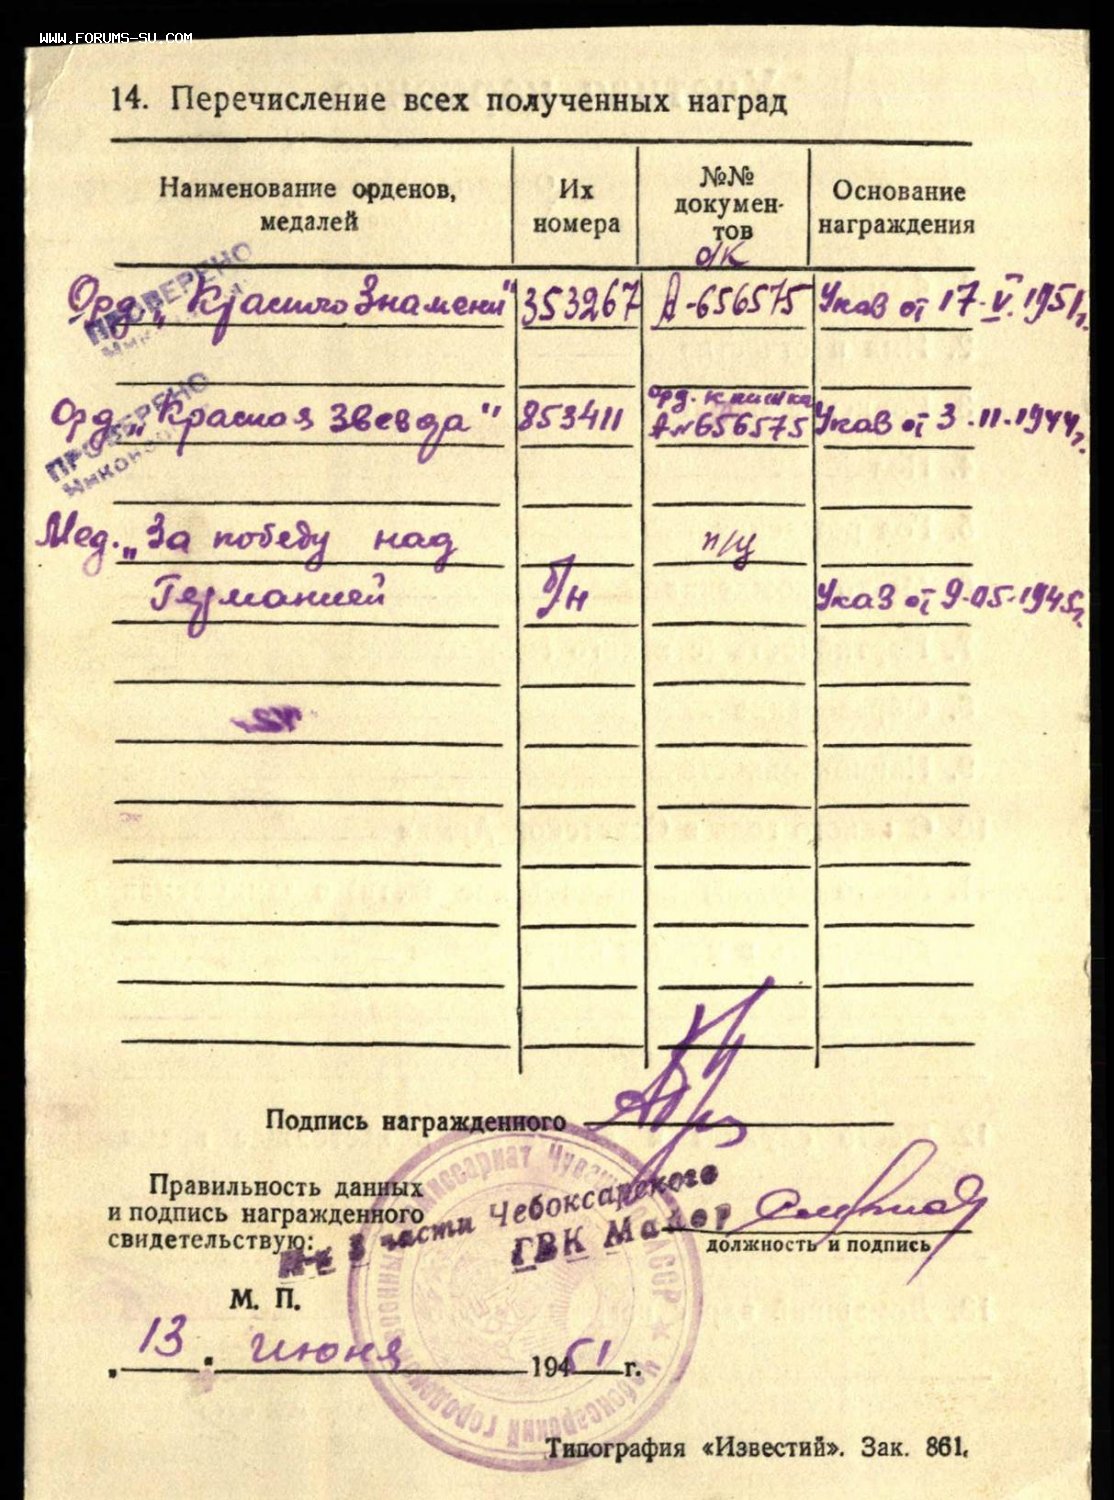 www.forums-su.com
14. Перечисление всех полученных наград
Наименование орденов, медалей
Их номера
№№ докумен-тов
Основание награждения
о/к
Орд. „Красного Знамени" 353267 А-656575 Указ от 17-V.1951г.
ПРОВЕРЕНО
орд. книжка
Орд. „Красная Звезда" 853411 А№656575 Указ от 3.11.1944г.
ПРОВЕРЕНО
Мед. „За победу над п/у
Германией б/н Указ от 9-05-1945г.
Подпись награжденного
Правильность данных
и подпись награжденного
свидетельствую:
3 части Чебоксарского
ГВК Майор
должность и подпись
М. П.
„13" июня 1951 г.
Чебоксарский Городской Военный Комиссариат
АССР
Типография «Известий». Зак. 861.